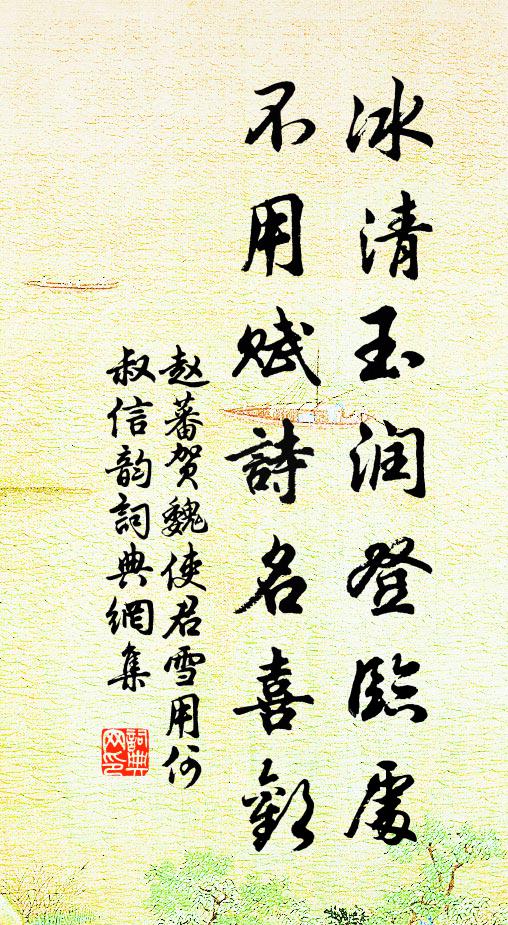 冰清玉润登臨處
不用赋詩名喜歡
赵蕃贺魏使君雪用何
叔信韵詞典網集
詞典网印